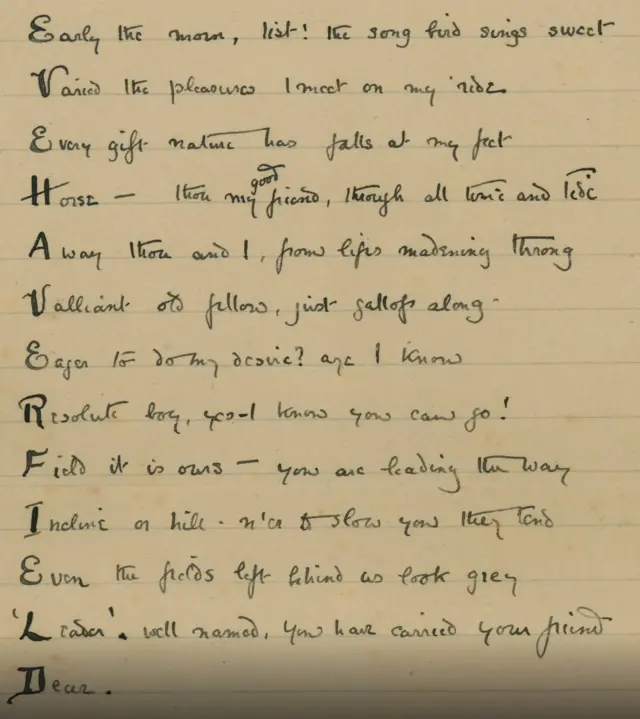 Early the morn, list! the song bird sings sweet
Varied the pleasures I meet on my ride
Every gift nature has falls at my feet
Horse — thou my good friend, through all time and tide
Away thou and I, from lifes madening throng
Valliant old fellow, just gallop along -
Eager to do my desire? aye I know
Resolute boy, yes - I know you can go!
Field it is ours — you are leading the way
Incline or hill - n'er to slow you they tend
Even the fields left behind us look grey
'Leader'. well named, you have carried your friend
Dear.